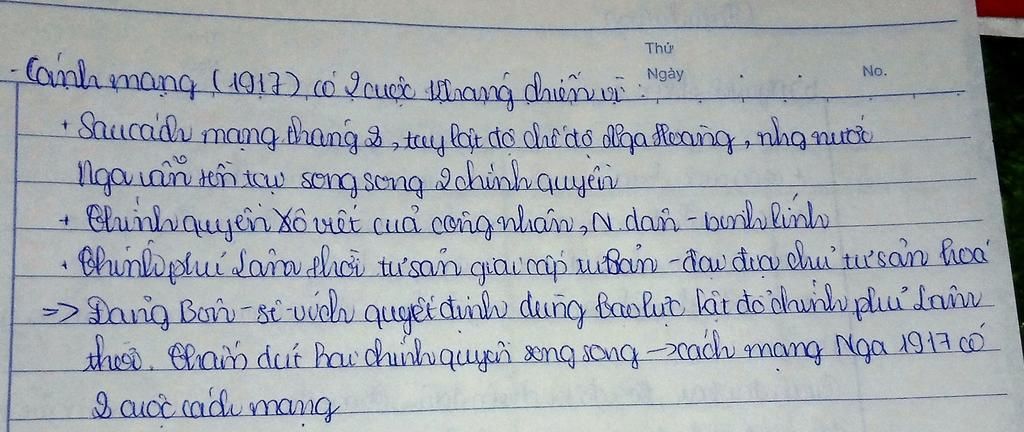 Thứ
Ngày . . No.
- Cánh mạng (1917) có 2 cuộc kháng chiến vì :
+ Sau cách mạng tháng 2, tuy lật đổ chế độ Nga Hoàng, nhg nước
Nga vẫn tồn tại song song 2 chính quyền
+ Chính quyền Xô viết của công nhân, N. dân - binh lính
. Chính phủ lâm thời tư sản giai cấp tư bản - đại địa chủ tư sản hoá
=> Đảng Bôn - sê - vích quyết định dùng bạo lực lật đổ chính phủ lâm
thời. Chấm dứt hai chính quyền song song -> cách mạng Nga 1917 có
2 cuộc cách mạng